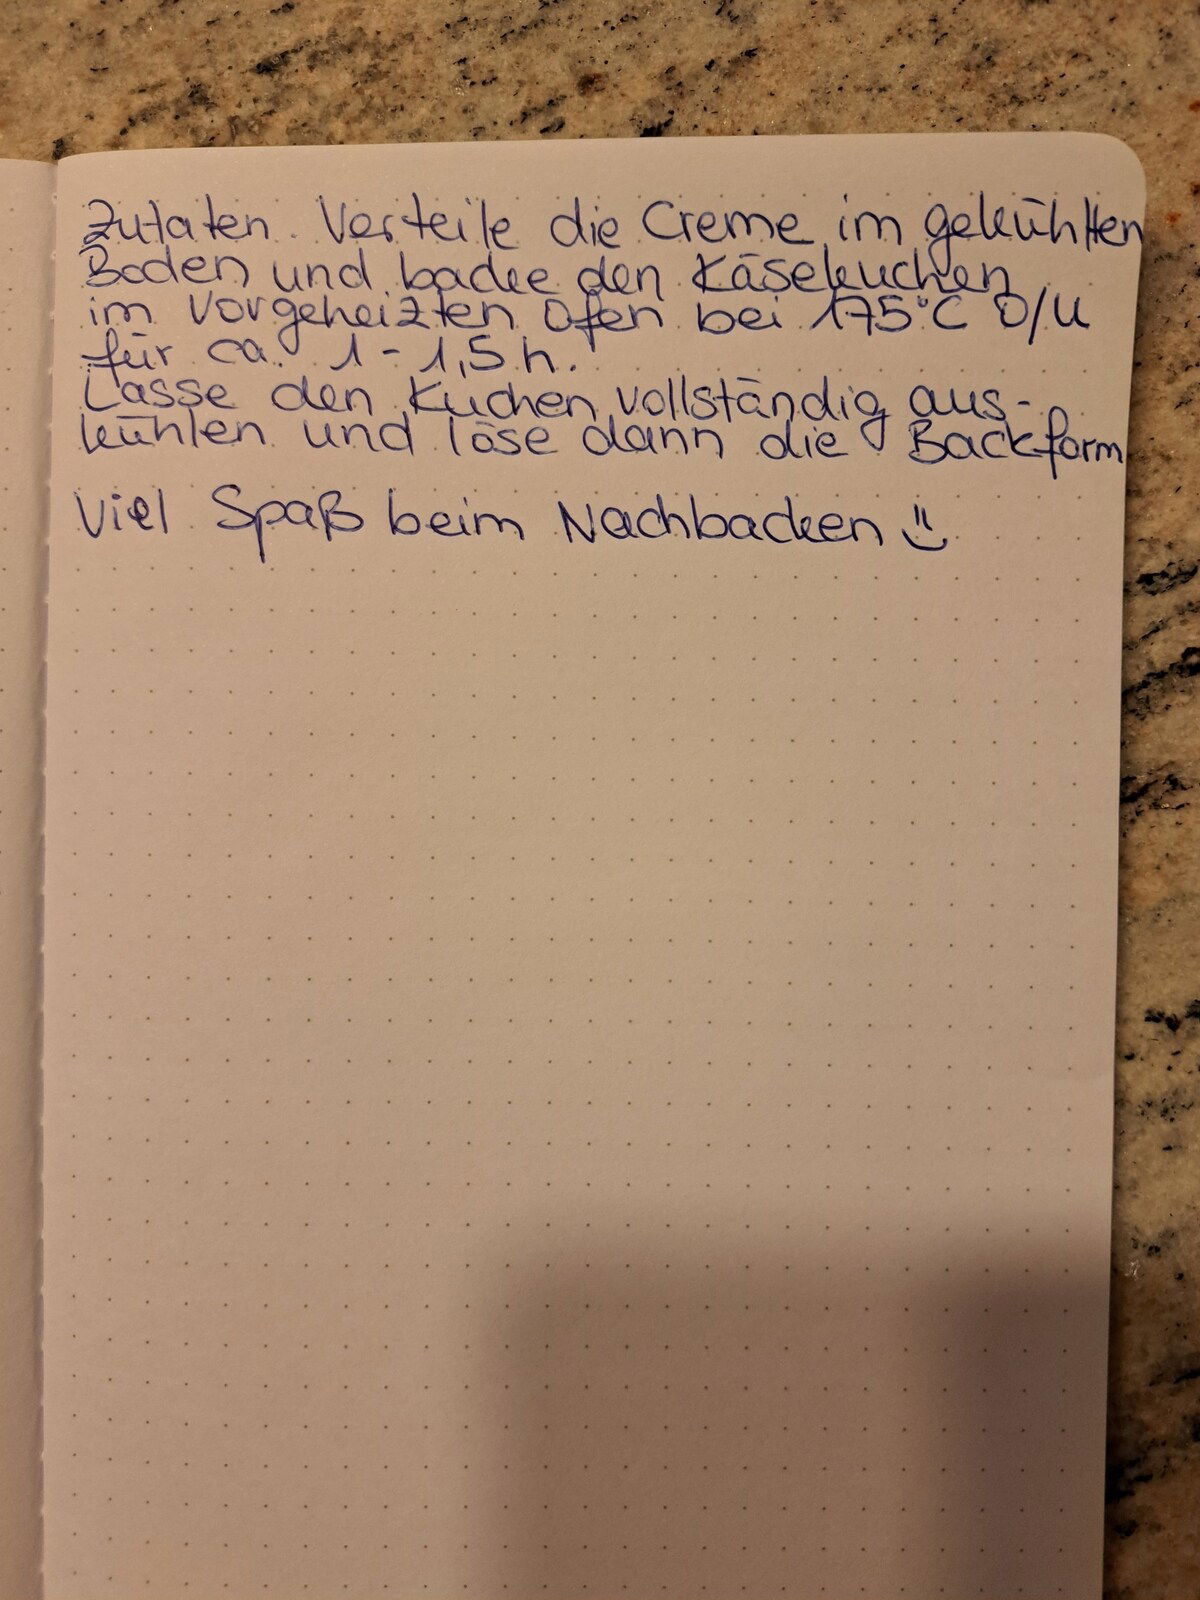 Zutaten. Verteile die Creme im gekühlten
Boden und backe den Käsekuchen
im vorgeheizten Ofen bei 175°C O/U
für ca. 1-1,5 h.
Lasse den Kuchen vollständig aus-
kühlen und löse dann die Backform
Viel Spaß beim Nachbacken